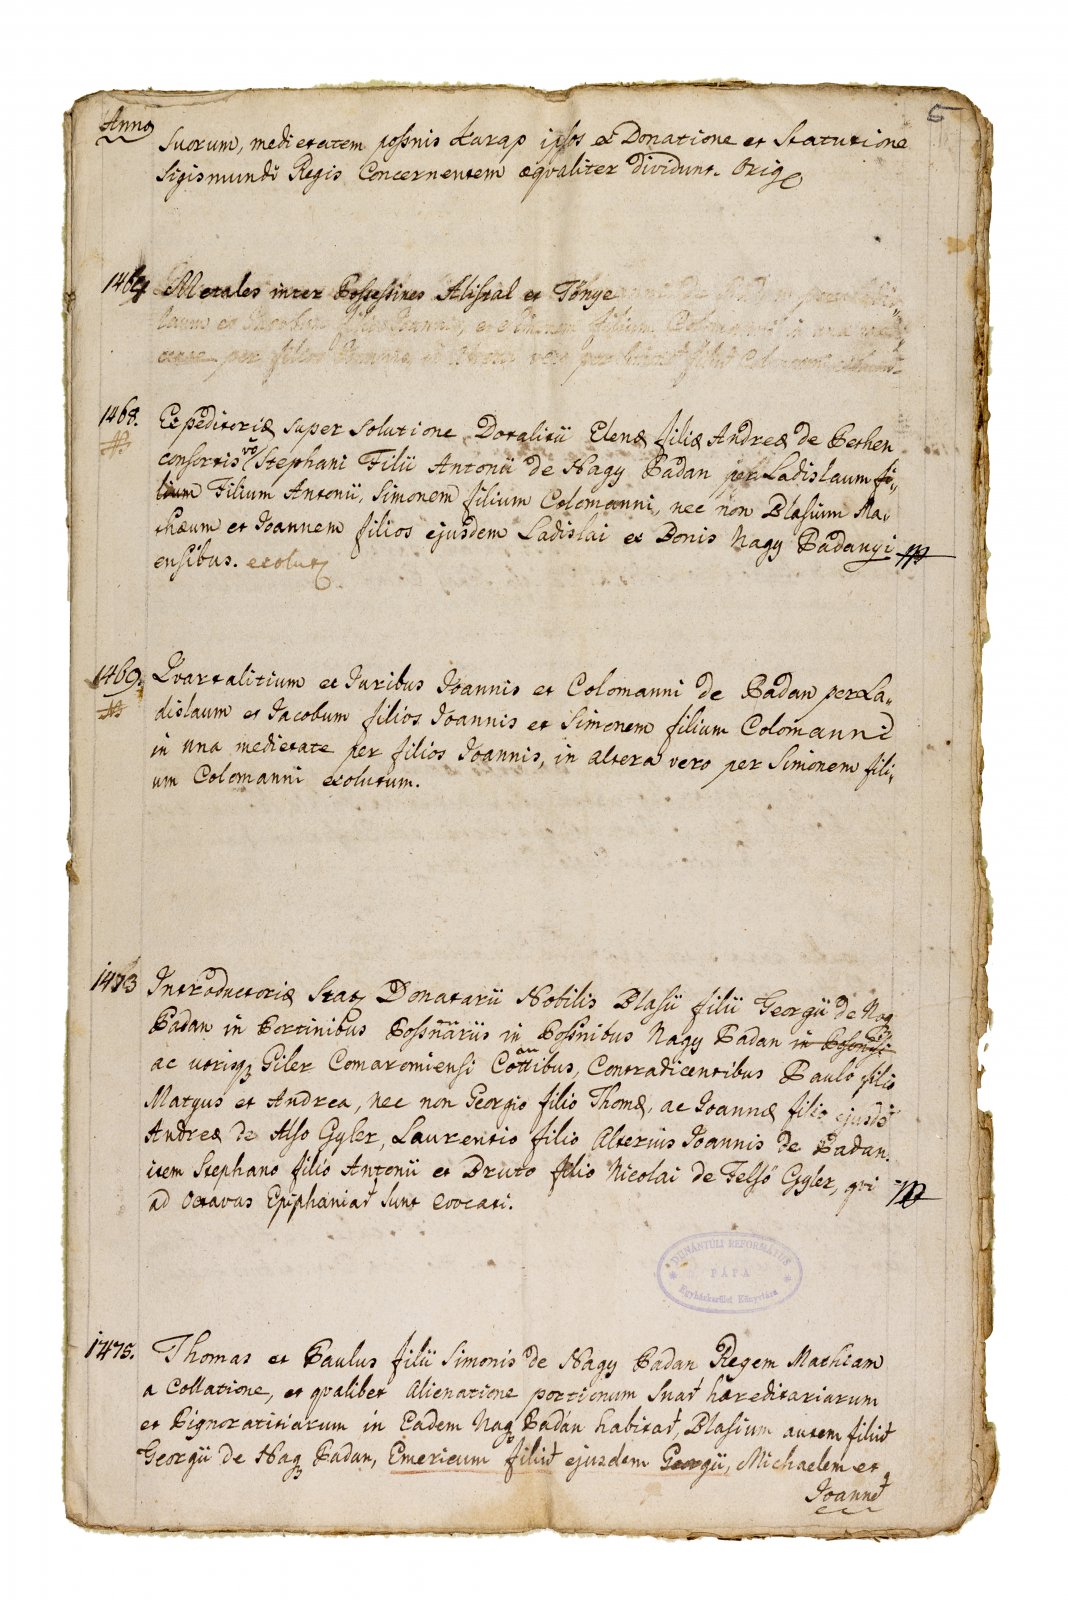 5
Anno
Suorum, medietatem possnis Karap ipsos ex Donatione et Statutione
Sigismundi Regis Concernentem æqvaliter dividunt. Orig
1464 Metales inter Possessines Alistal et Tönye
laum et Jacobum filios Joannis, et Simonem filium Colomanni in una medi„
etate per filios Joannis, in altera vero per Simonem filium Colomanni
1468. Expeditoriæ super solutione Dotalitii Elenæ filiæ Andreæ de Bethen
consortis vo Stephani Filii Antonii de Nagy Badan per Ladislaum fi„
lium Filium Antonii, Simonem filium Colomanni, nec non Blasium Ma„
thæum et Joannem filios ejusdem Ladislai ex Bonis Nagy Badanyi
ensibus. exolut
1469. Qvartalitium ex Juribus Joannis et Colomanni de Badan per La„
dislaum et Jacobum filios Joannis et Simonem filium Colomanni
in una medietate per filios Joannis, in altera vero per Simonem fili„
um Colomanni exolutum.
1473 Introductoriæ Stat Donatarii Nobilis Blasii filii Georgii de Nag
Badan in Portinibus Possnariis in Possnibus Nagy Badan in Posonsi
ac utrisq Giler Comaromiensi Cottibus, Contradicentibus Paulo filio
Matyus et Andrea, nec non Georgio filio Thomæ, ac Joanne filio ejusd
Andreæ de Also Gyler, Laurentio filio Alterius Joannis de Badan.
item Stephano filio Antonii et Bruto filio Nicolai de Felsö Gyler, qvi
ad Octavas Epiphaniar sunt evocati.
DUNÁNTÚLI REFORMÁTUS
PÁPA
Egyházkerület Könyvtára
1475. Thomas et Paulus filii Simonis de Nagy Badan Regem Mathiam
a Collatione, et qvalibet Alienatione portionum Suar hæreditariarum
et Pignoratitiarum in Eadem Nag Badan habitar, Blasium autem filiu
Georgii de Nag Badan, Emericum filiu ejusdem Georgii, Michaelem et
Joanne